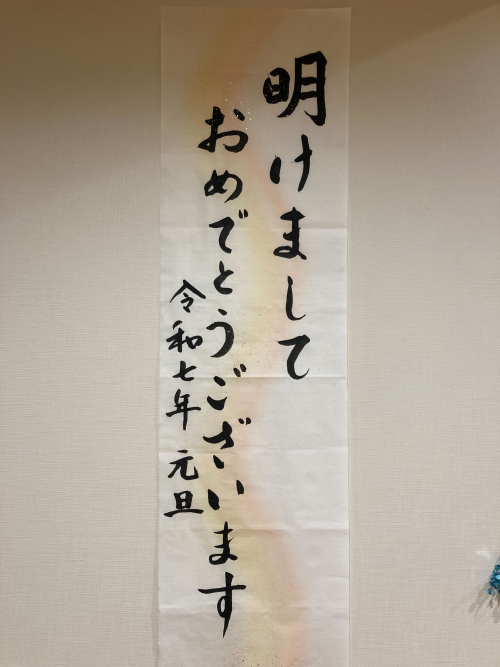 明けまして
おめでとうございます
令和七年 元旦